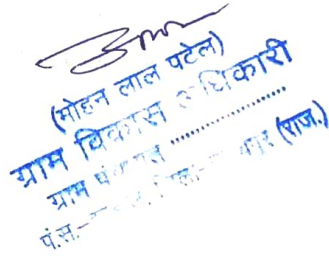 (मोहन लाल पटेल)
ग्राम विकास अधिकारी
ग्राम पंचायत ..................
पं.स.- जिला- (राज.)